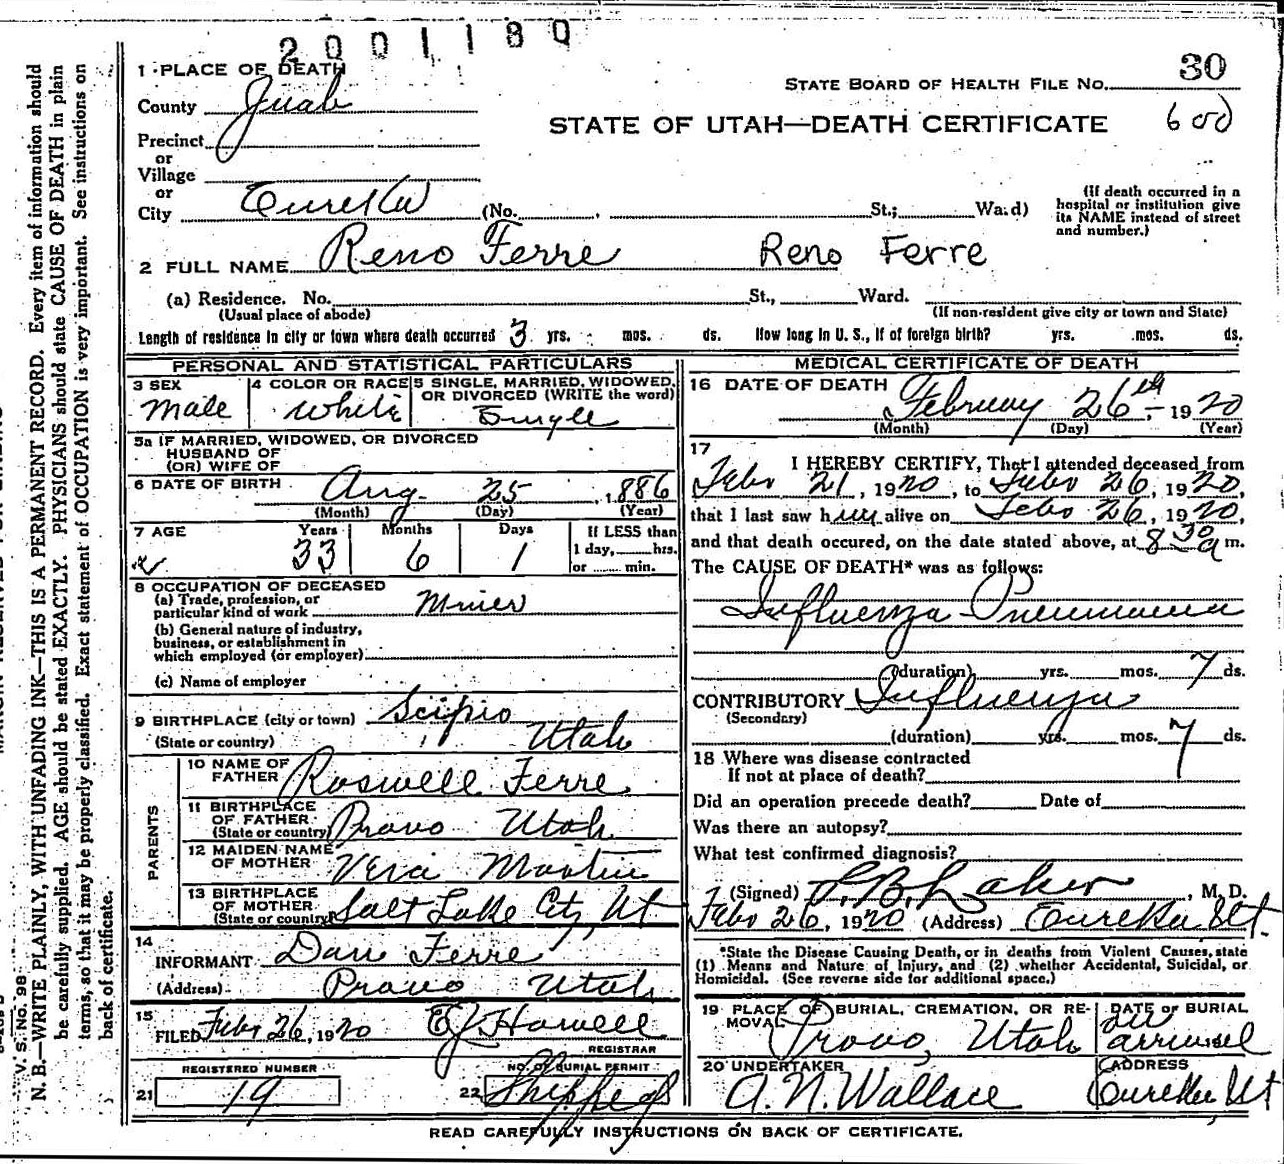 2001180
1 PLACE OF DEATH
County Juab
STATE BOARD OF HEALTH FILE No. 30
STATE OF UTAH—DEATH CERTIFICATE
600
Precinct
or
Village
or
City Eureka (No. , St.; Ward)
(If death occurred in a hospital or institution give its NAME instead of street and number.)
2 FULL NAME Reno Ferre Reno Ferre
(a) Residence. No. St., Ward.
(Usual place of abode) (If non-resident give city or town and State)
Length of residence in city or town where death occurred 3 yrs. mos. ds. How long in U. S., if of foreign birth? yrs. mos. ds.
PERSONAL AND STATISTICAL PARTICULARS
3 SEX Male
4 COLOR OR RACE White
5 SINGLE, MARRIED, WIDOWED, OR DIVORCED (WRITE the word) Single
5a IF MARRIED, WIDOWED, OR DIVORCED
HUSBAND OF
(OR) WIFE OF
6 DATE OF BIRTH Aug. 25, 1886
(Month) (Day) (Year)
7 AGE Years 33 Months 6 Days 1
If LESS than
1 day, hrs.
or min.
8 OCCUPATION OF DECEASED
(a) Trade, profession, or
particular kind of work Miner
(b) General nature of industry,
business, or establishment in
which employed (or employer)
(c) Name of employer
9 BIRTHPLACE (city or town) Scipio
(State or country) Utah
PARENTS
10 NAME OF
FATHER Roswell Ferre
11 BIRTHPLACE
OF FATHER
(State or country) Provo Utah
12 MAIDEN NAME
OF MOTHER Vera Martin
13 BIRTHPLACE
OF MOTHER
(State or country) Salt Lake City, Ut
14
INFORMANT Dan Ferre
(Address) Provo Utah
15
FILED Feb 26, 1920 E J Howell
REGISTRAR
REGISTERED NUMBER
21 19
NO. OF BURIAL PERMIT
22 Shipped
MEDICAL CERTIFICATE OF DEATH
16 DATE OF DEATH February 26th, 1920
(Month) (Day) (Year)
17
I HEREBY CERTIFY, That I attended deceased from
Feb 21, 1920, to Feb 26, 1920,
that I last saw him alive on Feb 26, 1920,
and that death occured, on the date stated above, at 8 30 a m.
The CAUSE OF DEATH* was as follows:
Influenza Pneumonia
(duration) yrs. mos. 7 ds.
CONTRIBUTORY Influenza
(Secondary)
(duration) yrs. mos. 7 ds.
18 Where was disease contracted
If not at place of death?
Did an operation precede death? Date of
Was there an autopsy?
What test confirmed diagnosis?
(Signed) Laker, M. D.
Feb 26, 1920 (Address) Eureka Ut.
*State the Disease Causing Death, or in deaths from Violent Causes, state
(1) Means and Nature of Injury, and (2) whether Accidental, Suicidal, or
Homicidal. (See reverse side for additional space.)
19 PLACE OF BURIAL, CREMATION, OR RE-
MOVAL Provo, Utah
DATE OF BURIAL
on arrival
20 UNDERTAKER
A. N. Wallace
ADDRESS
Eureka, Ut
READ CAREFULLY INSTRUCTIONS ON BACK OF CERTIFICATE.
V. S. No. 98
N. B.—WRITE PLAINLY, WITH UNFADING INK—THIS IS A PERMANENT RECORD. Every item of information should
be carefully supplied. AGE should be stated EXACTLY. PHYSICIANS should state CAUSE OF DEATH in plain
terms, so that it may be properly classified. Exact statement of OCCUPATION is very important. See instructions on
back of certificate.